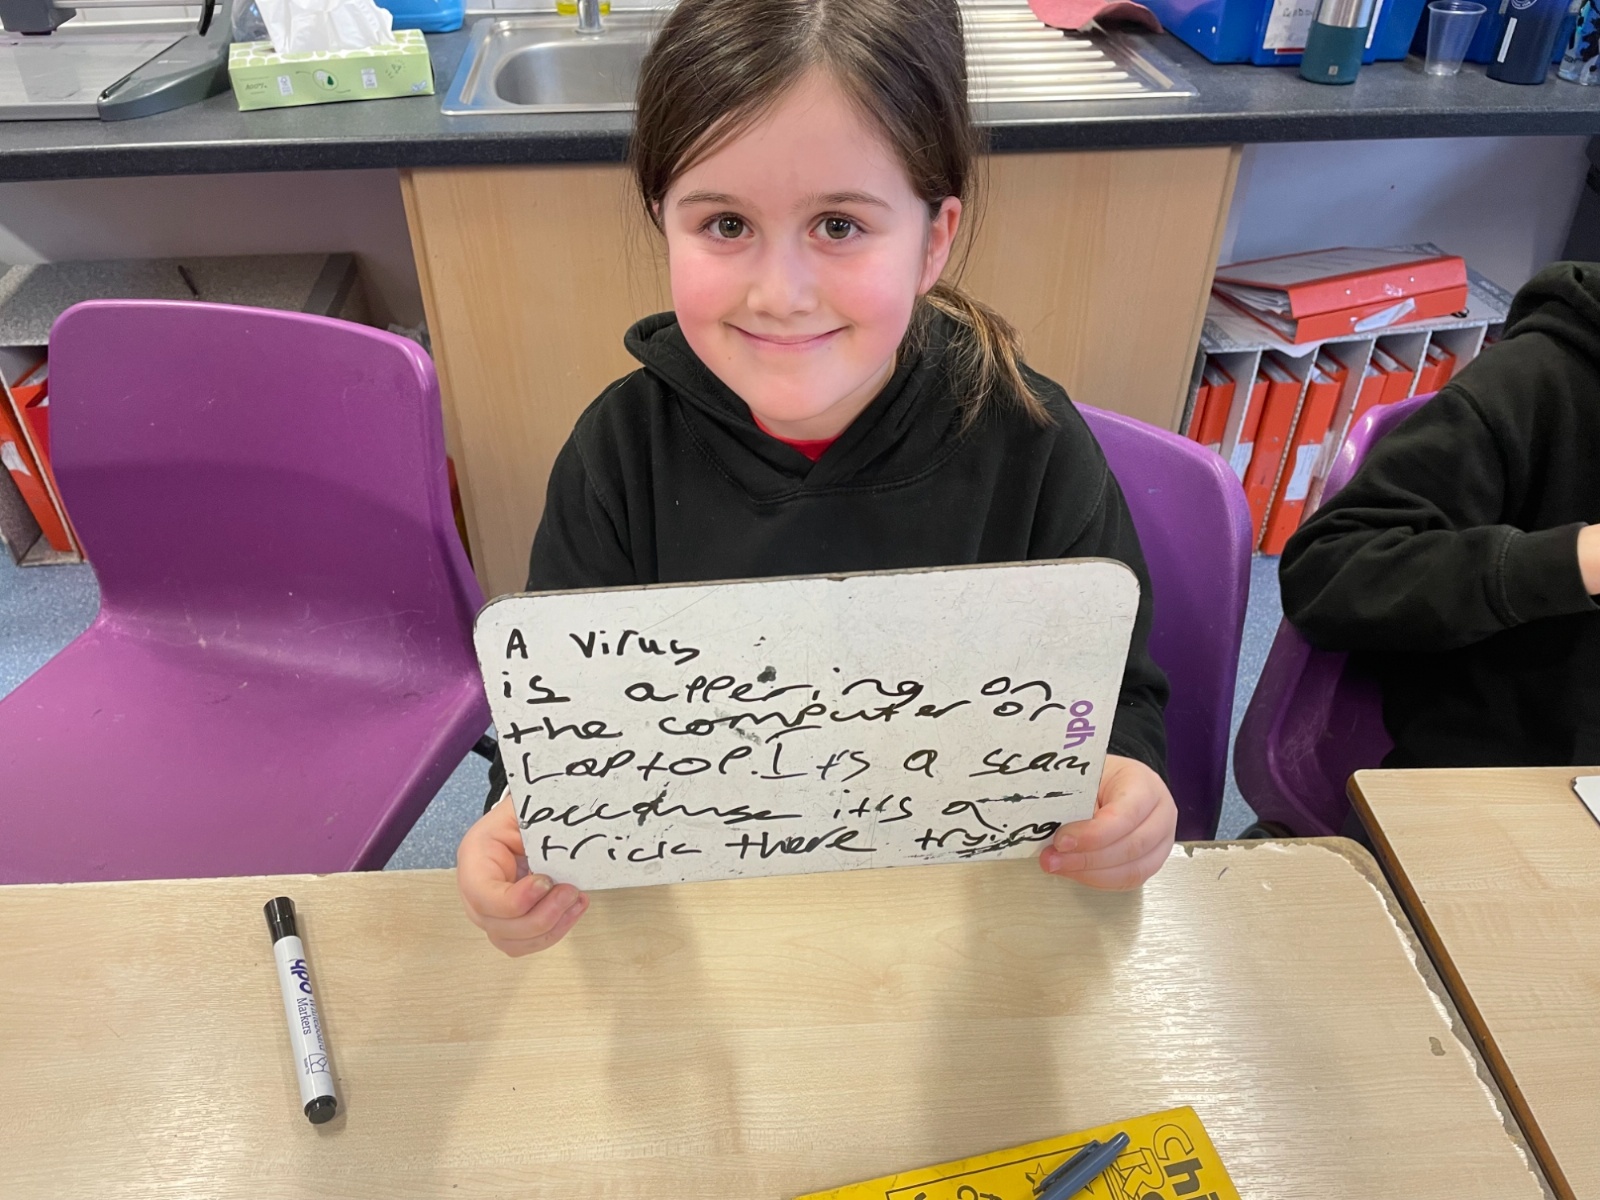 A virus
is appering on
the computer or
Laptop. Its a scam
because it's a
trick there trying
ypo
ypo
Markers
Chi